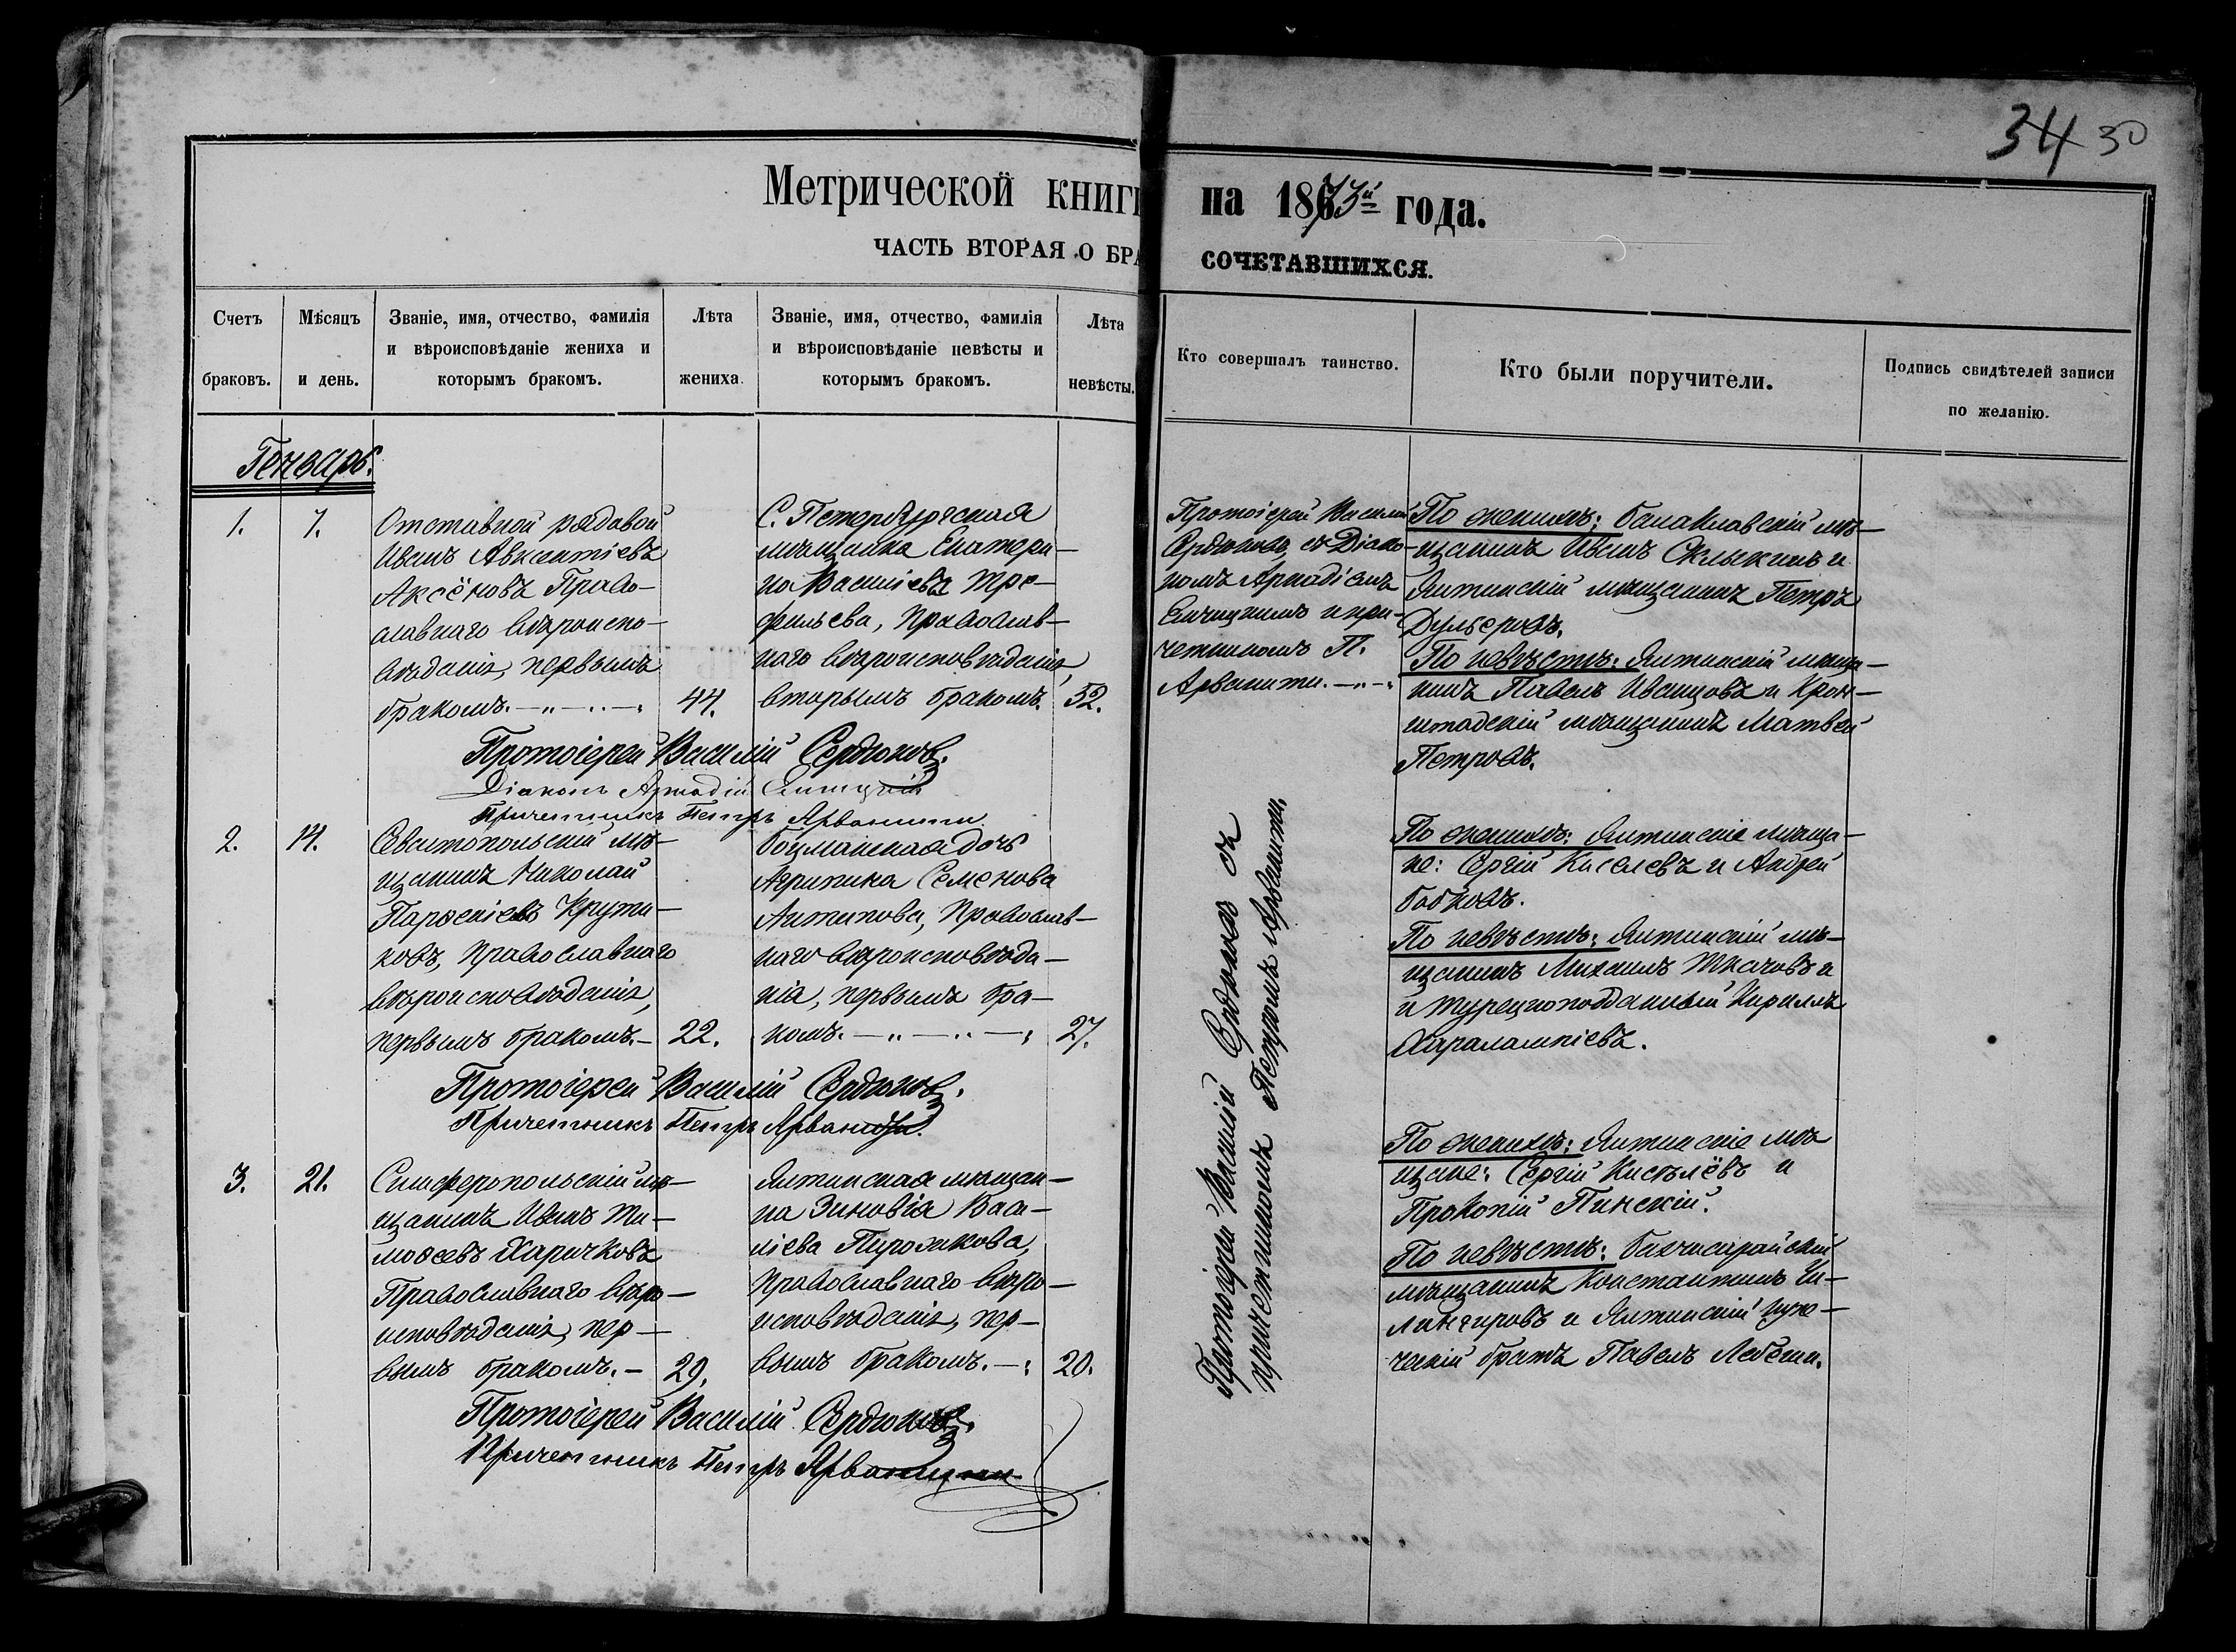 34 30
Метрической книги на 1873й года.
ЧАСТЬ ВТОРАЯ О БРА СОЧЕТАВШИХСЯ.
Счетъ браковъ.
Мѣсяцъ и день.
Званіе, имя, отчество, фамилія
и вѣроисповѣданіе жениха и
которымъ бракомъ.
Лѣта жениха.
Званіе, имя, отчество, фамилія
и вѣроисповѣданіе невѣсты и
которымъ бракомъ.
Лѣта невѣсты.
Кто совершалъ таинство.
Кто были поручители.
Подпись свидѣтелей записи
по желанію.
Генварь.
1. 7.
Отставной рядовой
Иванъ Авксентіевъ
Аксёновъ Право-
славнаго вѣроиспо-
вѣданія, первымъ
бракомъ. 44.
С. Петербургская
мѣщанка Екатери-
на Васильева Тре-
фильева, Православ-
наго вѣроисповѣданія,
вторымъ бракомъ. 52.
Протоіерей Василій
Сердюковъ, съ Діако-
номъ Аркадіемъ
и при-
четникомъ П.
Арванити.
По женихѣ: Балаклавскій мѣ-
щанинъ Иванъ Склыкинъ и
Ялтинскій мѣщанинъ Петръ
Дульеровъ.
По невѣстѣ: Ялтинскій мѣща-
нинъ Павелъ Иванцовъ и Крон-
штадскій мѣщанинъ Матвей
Петровъ.
Протоіерей Василій Сердюковъ.
Діаконъ Аркадій
Причетникъ Петръ Арванити.
2. 14.
Севастопольскій мѣ-
щанинъ Николай
Парѳеніевъ Крути-
ковъ, Православнаго
вѣроисповѣданія,
первымъ бракомъ. 22.
Боцманская дочь
Агрипина Семенова
Антипова, Православ-
наго вѣроисповѣда-
нія, первымъ бра-
комъ. 27.
Протоіерей Василій Сердюковъ съ
причетникомъ Петромъ Арванити.
По женихѣ: Ялтинскіе мѣща-
не: Сергій Киселевъ и Андрей
Бобковъ.
По невѣстѣ: Ялтинскій мѣ-
щанинъ Михаилъ Ткачовъ и
и турецкоподданный Кириллъ
Харалампіевъ.
Протоіерей Василій Сердюковъ.
Причетникъ Петръ Арванити.
3. 21.
Симферопольскій мѣ-
щанинъ Иванъ Ти-
моѳеевъ Харичковъ
Православнаго вѣро-
исповѣданія, пер-
вымъ бракомъ. 29.
Ялтинская мѣщан-
ка Зиновія Васи-
ліева Пирожкова,
Православнаго вѣро-
исповѣданія, пер-
вымъ бракомъ. 20.
По женихѣ: Ялтинскіе мѣ
щане: Сергій Кисѣлёвъ и
Прокопій Пинскій.
По невѣстѣ: Бахчисарайскій
мѣщанинъ Константинъ Чи-
лингировъ и Ялтинскій купе-
ческій братъ Павелъ
Протоіерей Василій Сердюковъ.
Причетникъ Петръ Арванити